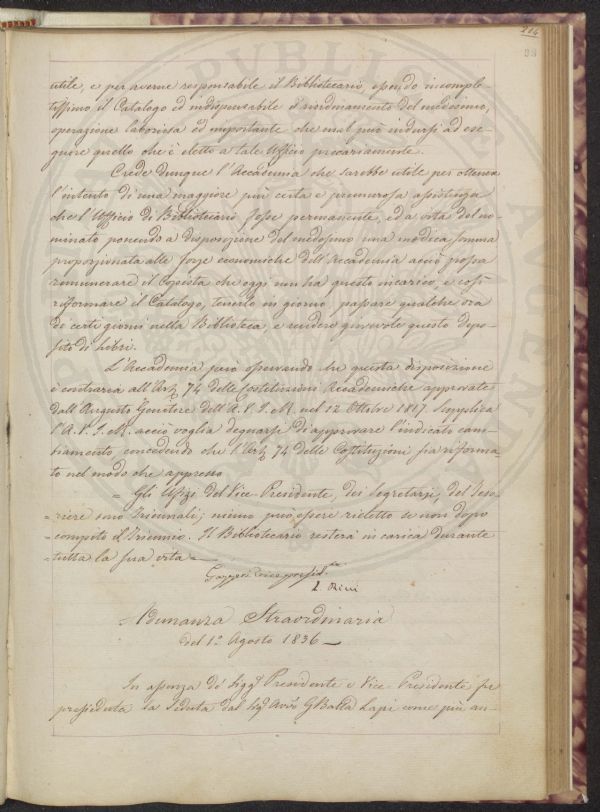 214
98
utile, e per averne responsabile il Bibliotecario, essendo incomple-
tissimo il Catalogo ed indispensabile il riordinamento del medesimo,
operazione laboriosa ed importante che mal può indursi ad ese-
guire quello che è eletto a tale Uffizio precariamente.
Crede dunque l'Accademia che sarebbe utile per ottenere
l'intento di una maggiore più certa e premurosa assistenza
che l'Uffizio di Bibliotecario fosse permanente, ed a vita del no-
minato ponendo a disposizione del medesimo una modica somma
proporzionata alle forze economiche dell'Accademia acciò possa
remunerare il Copista che oggi non ha questo incarico, e così
riformare il Catalogo, tenerlo in giorno, passare qualche ora
di certi giorni nella Biblioteca, e rendere giovevole questo depo-
sito di libri.
L'Accademia però osservando che questa disposizione
è contraria all'Art. 74 delle Costituzioni Accademiche approvate
dall'Augusto Genitore dell'A. V. I. e R. nel 12 Ottobre 1817. Supplica
l'A. V. I. e R. acciò voglia degnarsi di approvare l'indicato cam-
biamento, concedendo che l'Art. 74 delle Costituzioni sia riforma-
to nel modo che appresso
= Gli Ufizi del Vice-Presidente, dei Segretarj, del Teso-
= riere sono Triennali; niuno può essere rieletto se non dopo
= compito il Triennio. Il Bibliotecario resterà in carica durante
= tutta la sua vita =
Gazzeri Vice presid.te
L. Rini
Adunanza Straordinaria
del 1° Agosto 1836 =
In assenza de' Sigg.ri Presidente e Vice-Presidente fu
presieduta la Seduta dal Sig. Avv.o G Batta Lapi come più an-
PVBLIC
AVGE